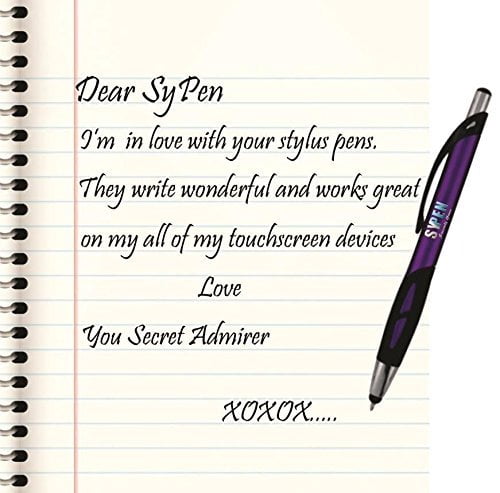 Dear SyPen
I'm in love with your stylus pens.
They write wonderful and works great
on my all of my touchscreen devices
Love
You Secret Admirer
XOXOX.....
SYPEN